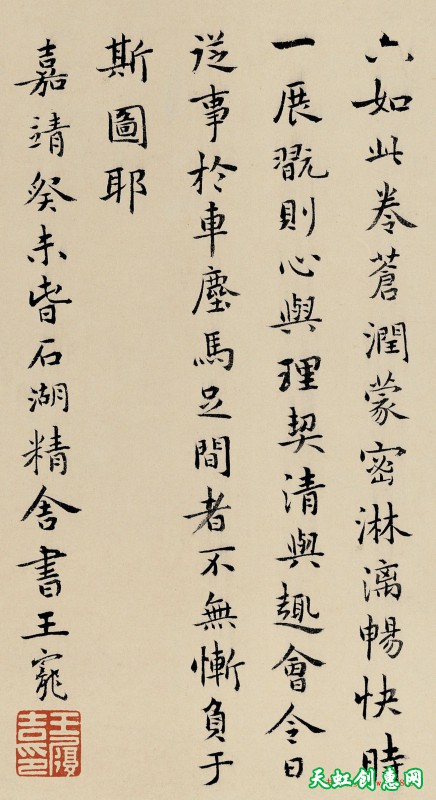 六如此卷蒼潤蒙密淋漓暢快時
一展翫則心與理契清與趣會今日
從事於車塵馬足間者不無慚負于
斯圖耶
嘉靖癸未旹石湖精舍書王寵
王履吉印
天虹创惠网